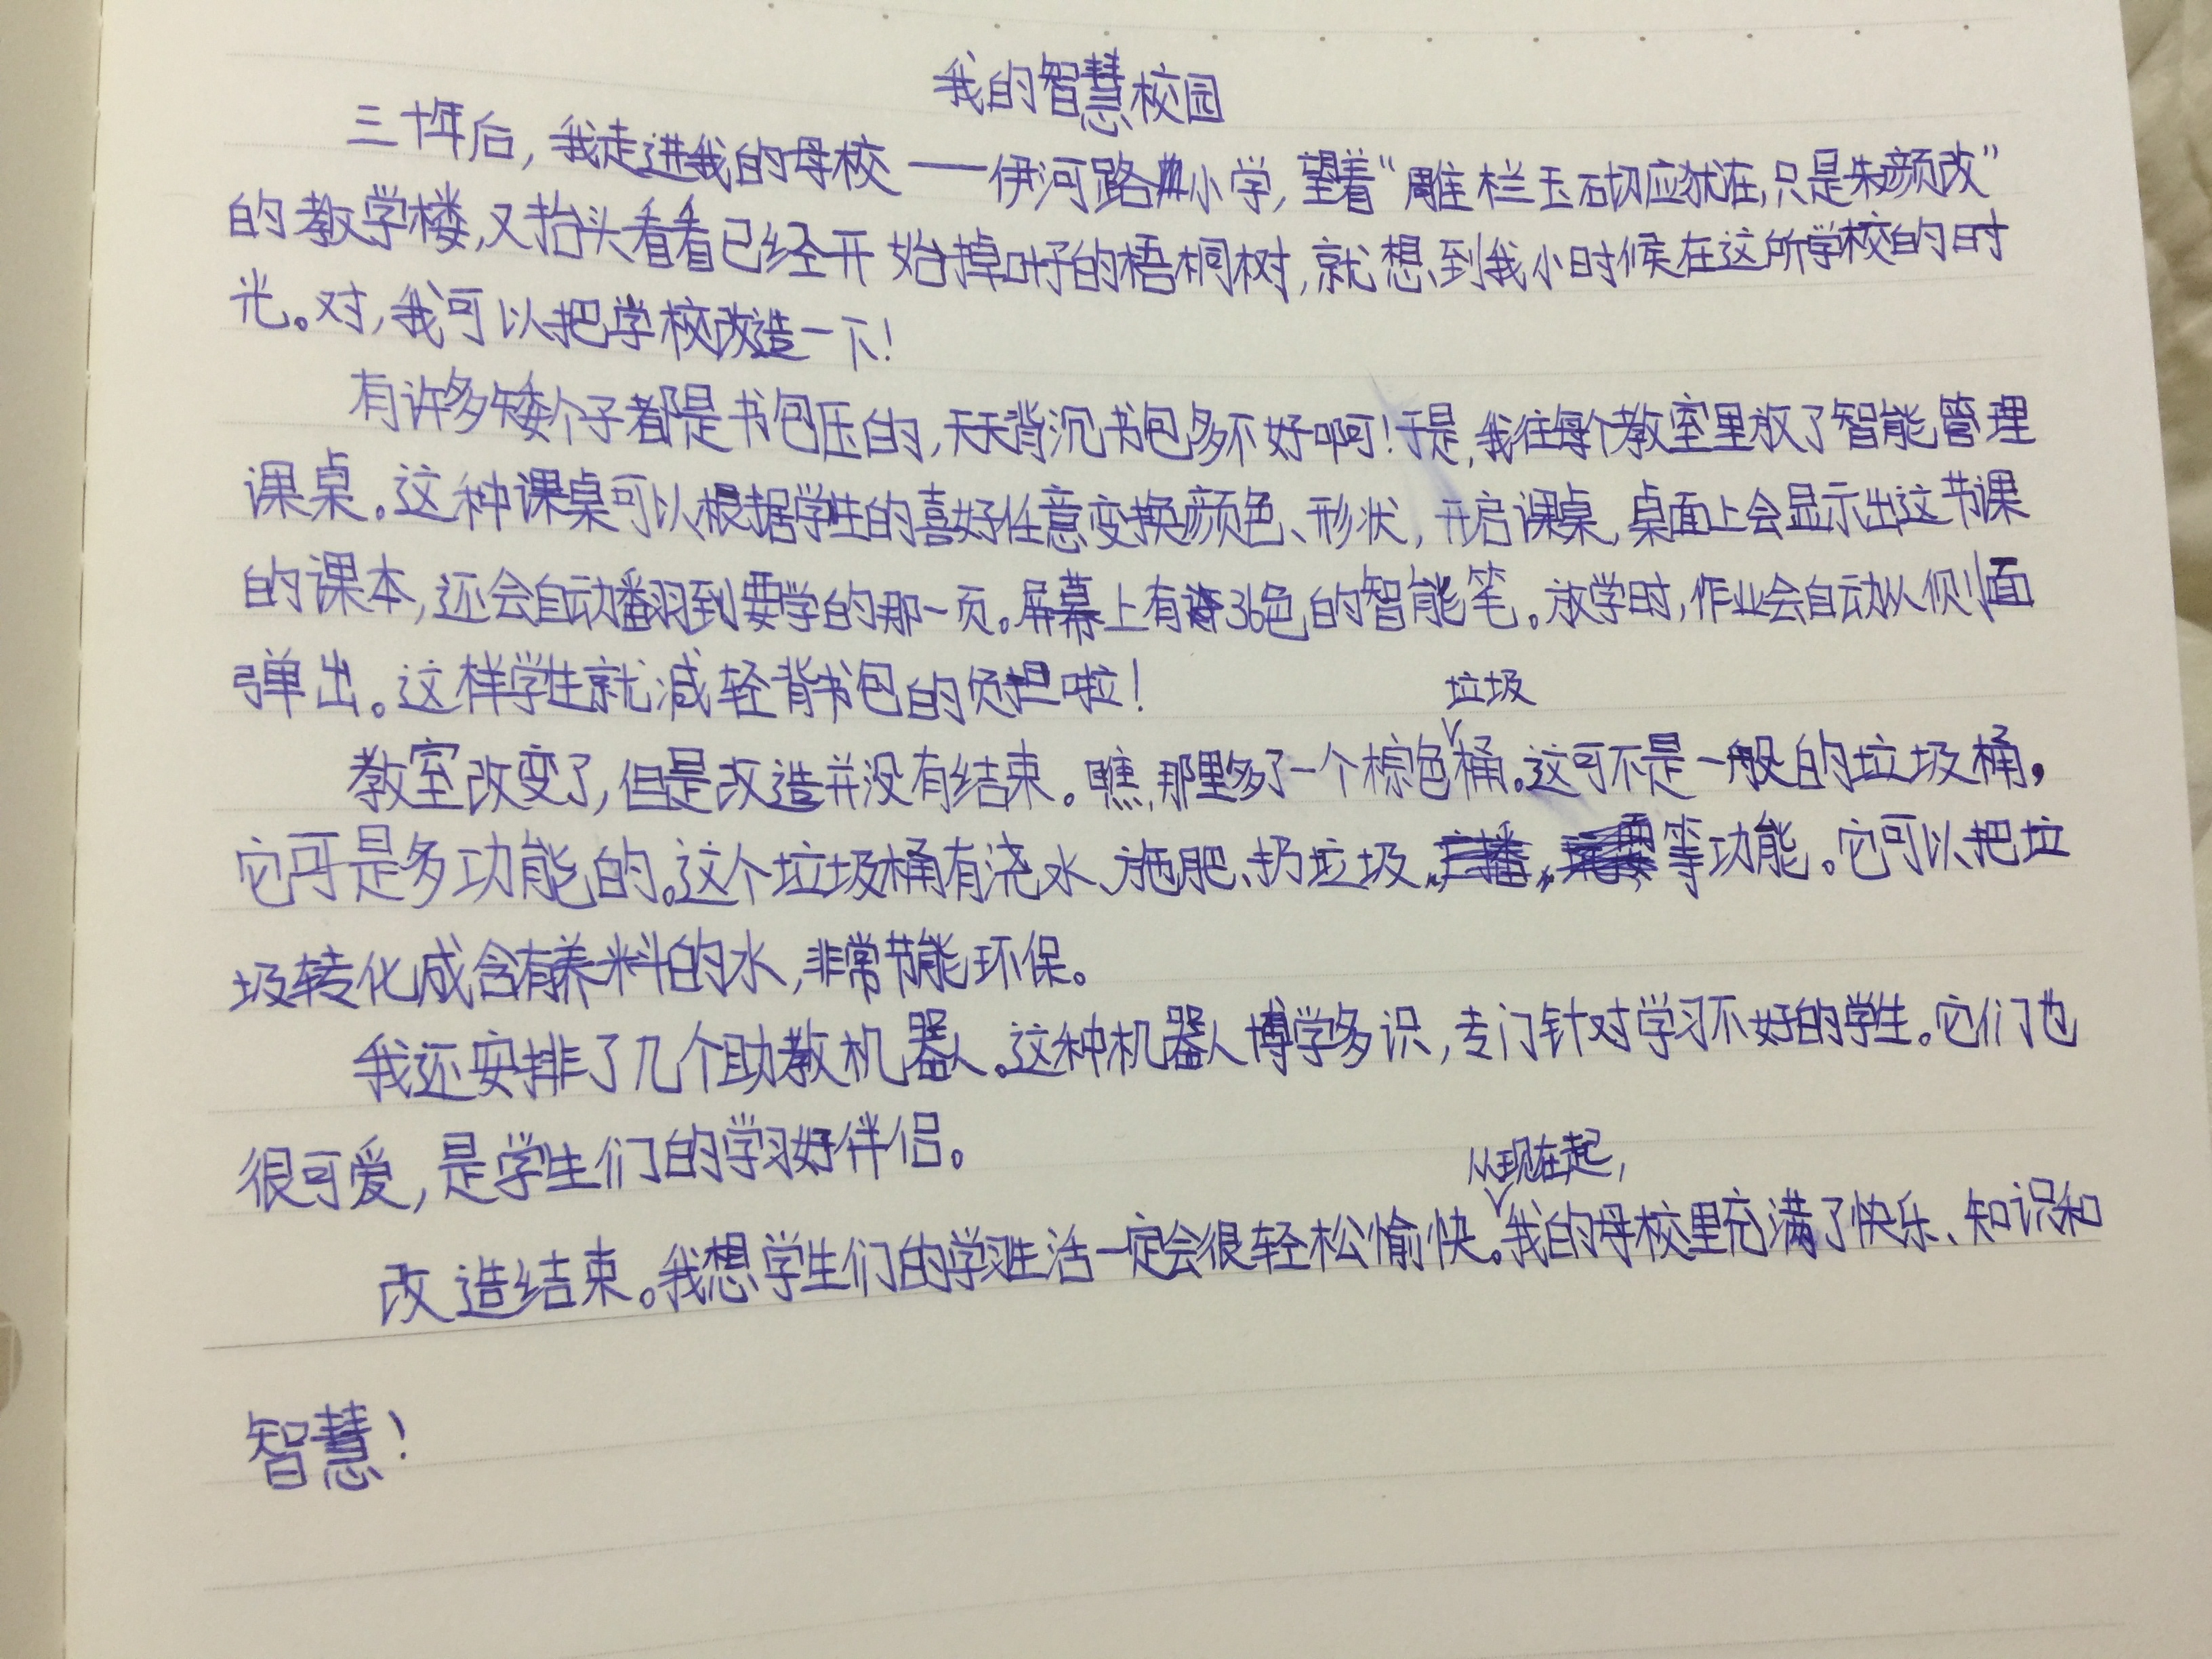 我的智慧校园
三十年后，我走进我的母校——伊河路小学，望着“雕栏玉砌应犹在，只是朱颜改”
的教学楼，又抬头看看已经开始掉叶子的梧桐树，就想到我小时候在这所学校的时
光。对，我可以把学校改造一下！
有许多矮个子都是书包压的，天天背沉书包多不好啊！于是，我往每个教室里放了智能管理
课桌。这种课桌可以根据学生的喜好任意变换颜色、形状，开启课桌，桌面上会显示出这节课
的课本，还会自动翻到要学的那一页。屏幕上有36色的智能笔。放学时，作业会自动从侧面
弹出。这样学生就减轻背书包的负担啦！
教室改变了，但是改造并没有结束。瞧，那里多了一个棕色垃圾桶。这可不是一般的垃圾桶，
它可是多功能的。这个垃圾桶有浇水、施肥、扔垃圾等功能。它可以把垃
圾转化成含有养料的水，非常节能环保。
我还安排了几个助教机器人。这种机器人博学多识，专门针对学习不好的学生。它们也
很可爱，是学生们的学习好伴侣。
改造结束。我想学生们的学习生活一定会很轻松愉快。从现在起，我的母校里充满了快乐、知识和
智慧！